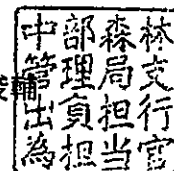 中部森林
管理局支
出負担行
為担当官
輔